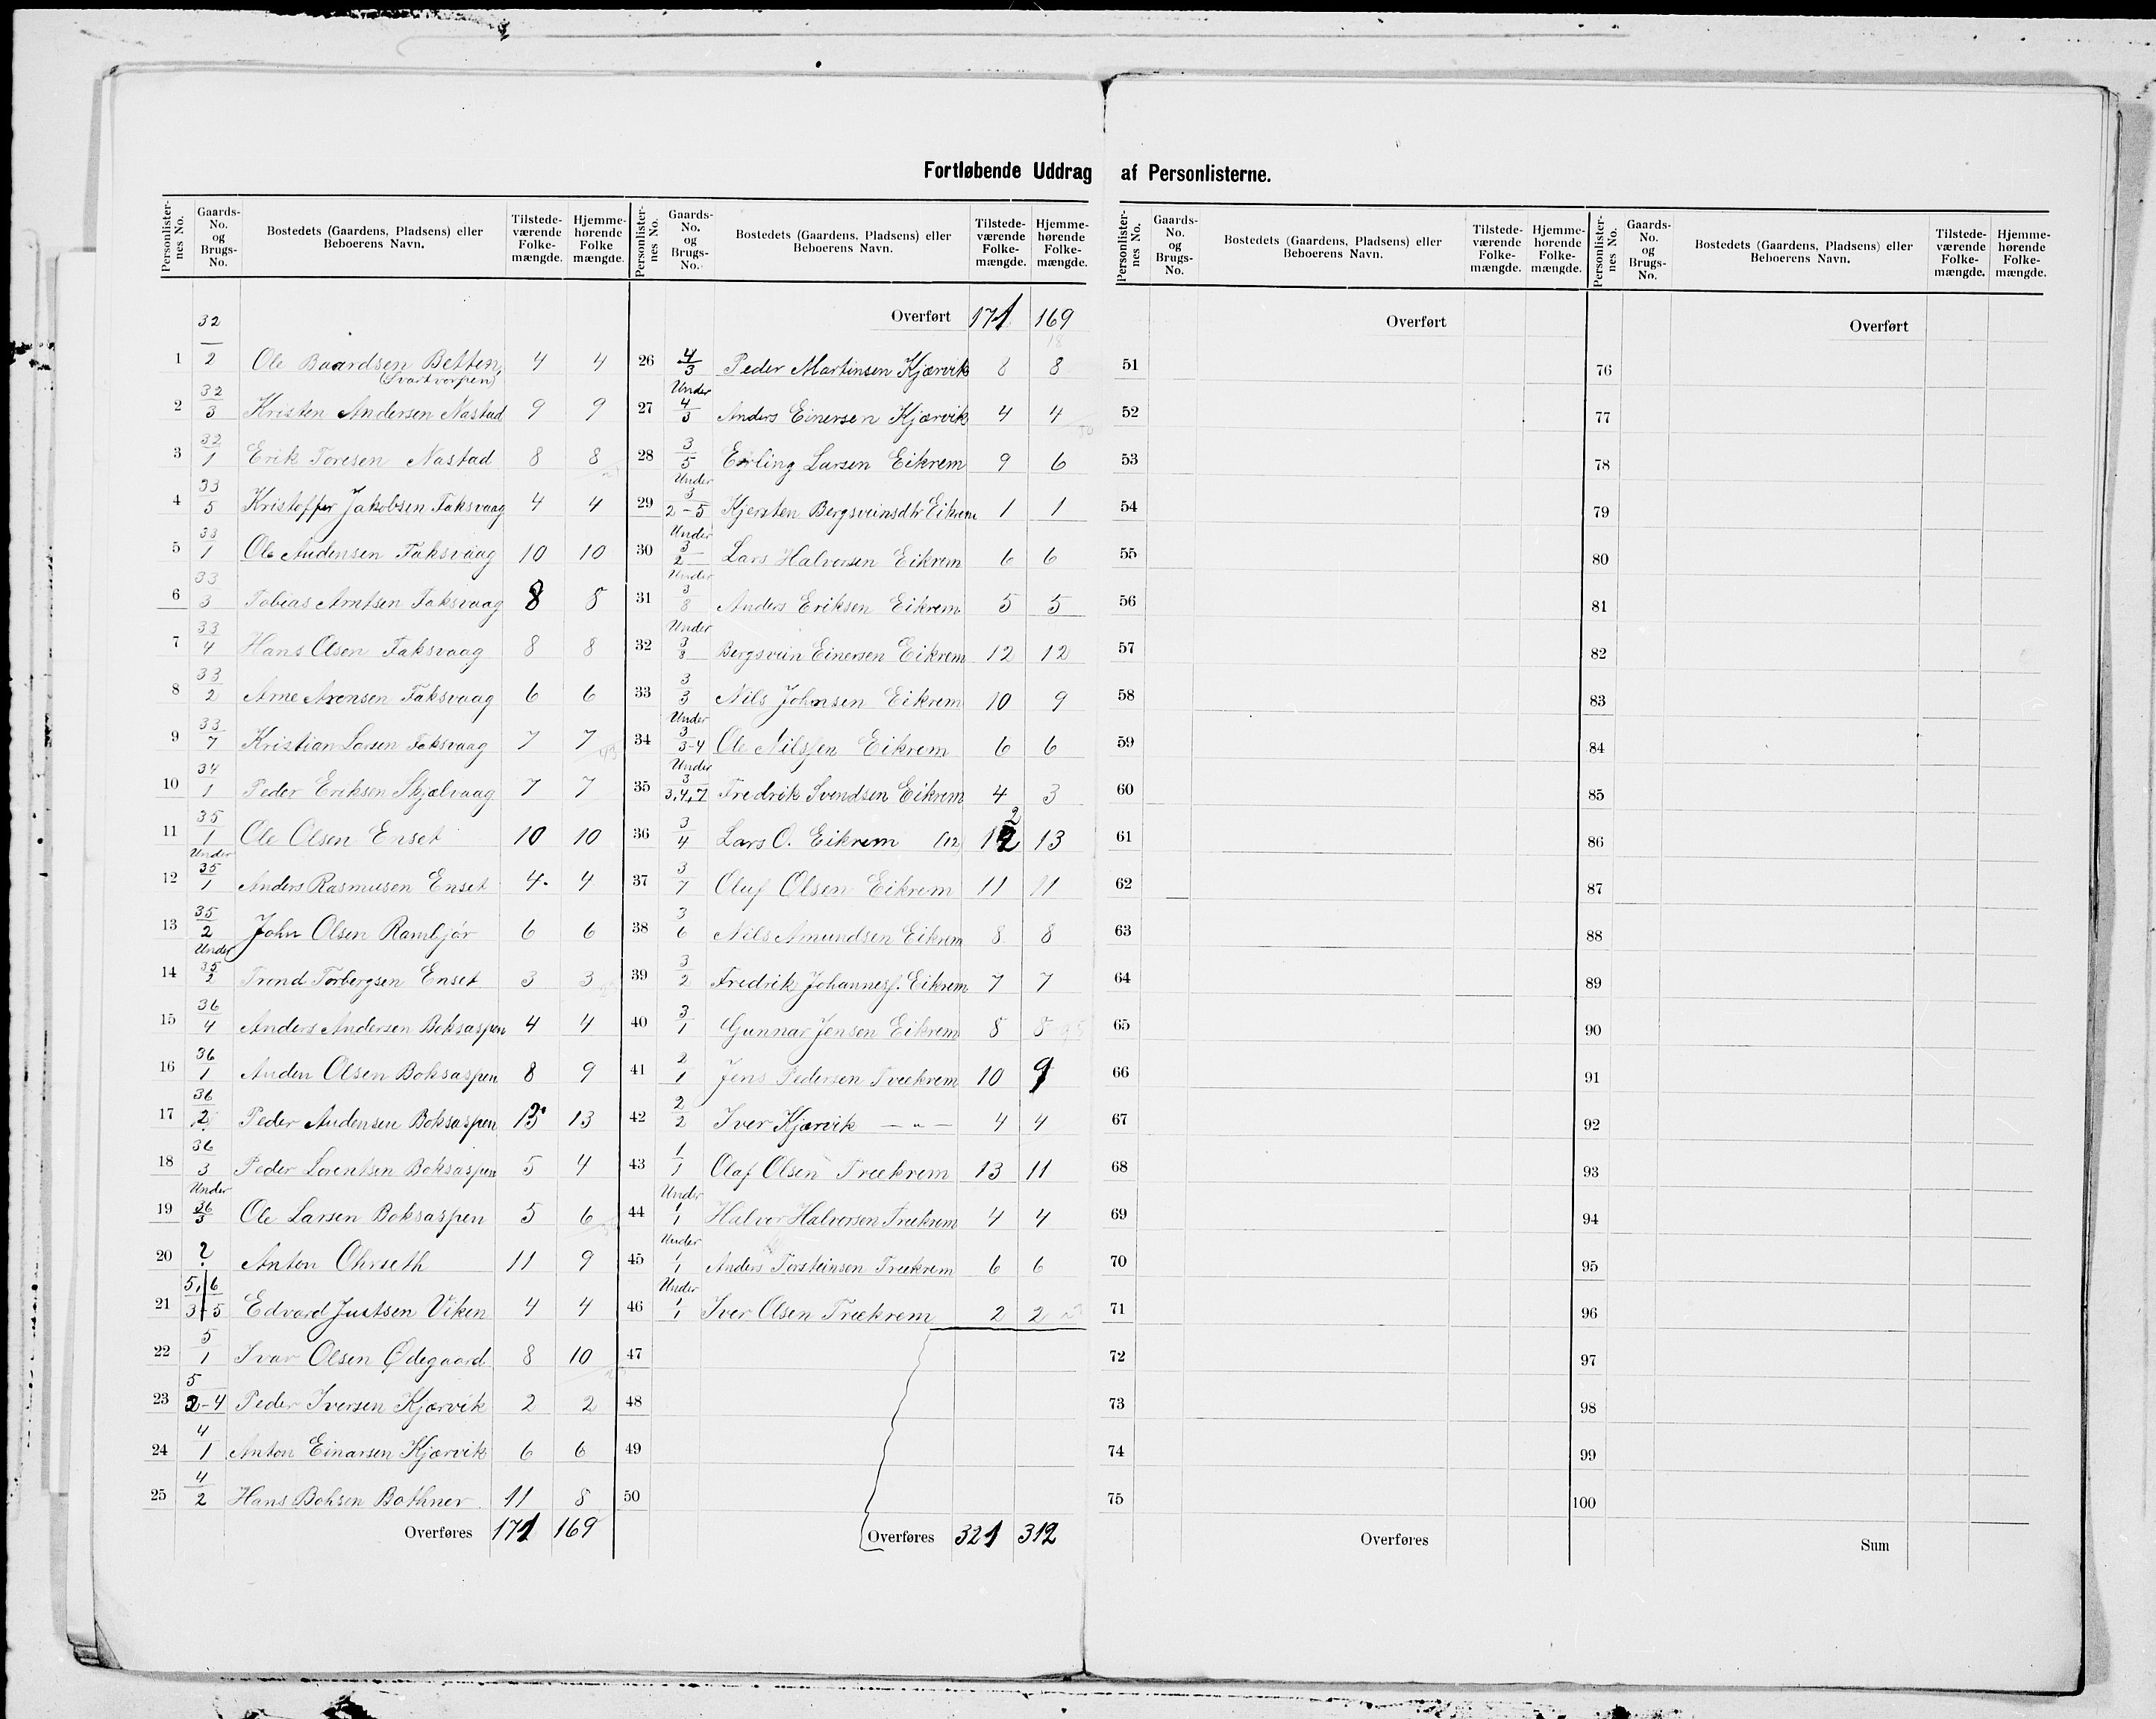 Fortløbende Uddrag af Personlisterne.
Personlister-nes No. Gaards-No. og Brugs-No. Bostedets (Gaardens, Pladsens) eller Beboerens Navn. Tilstede-værende Folke-mængde. Hjemme-hørende Folke mængde.
1 32/2 Ole Baardsen Betten 4 4
(Svartvorpen)
2 32/3 Kristen Andersen Nastad 9 9
3 32/1 Erik Toresen Nastad 8 8
4 33/5 Kristoffer Jakobsen Faksvaag 4 4
5 33/1 Ole Audensen Faksvaag 10 10
6 33/3 Tobias Arntsen Faksvaag 8 8
7 33/4 Hans Olsen Faksvaag 8 8
8 33/2 Arne Arensen Faksvaag 6 6
9 33/7 Kristian Larsen Faksvaag 7 7
10 34/1 Peder Eriksen Skjølvaag 7 7
11 35/1 Ole Olsen Enset 10 10
12 Under 35/1 Anders Rasmusen Enset 4. 4
13 35/2 John Olsen Rambjør 6 6
14 Under 35/2 Trond Torbergsen Enset 3 3
15 36/4 Anders Andersen Boksaspen 4 4
16 36/1 Auden Olsen Boksaspen 8 9
17 36/2 Peder Audensen Boksaspen 13 13
18 36/3 Peder Lorentsen Boksaspen 5 4
19 Under 36/3 Ole Larsen Boksaspen 5 6
20 ? Anton Ohrseth 11 9
21 5,6/3+5 Edvard Justsen Viken 4 4
22 5/1 Ivar Olsen Ødegaard 8 10
23 5/2-4 Peder Iversen Kjørvik 2 2
24 4/1 Anton Einarsen Kjørvik 6 6
25 4/2 Hans Bohsen Bothner 11 8
Overføres 171 169
Personlister-nes No. Gaards-No. og Brugs-No. Bostedets (Gaardens, Pladsens) eller Beboerens Navn. Tilstede-værende Folke-mængde. Hjemme-hørende Folke-mængde.
Overført 171 169
18
26 4/3 Peder Martinsen Kjørvik 8 8
27 Under 4/3 Anders Einersen Kjørvik 4 4
28 3/5 Erling Larsen Eikrem 9 6
29 Under 3/2-5 Kjersten Bergsveinsdtr Eikrem 1 1
30 Under 3/2 Lars Halvorsen Eikrem 6 6
31 Under 3/8 Anders Eriksen Eikrem 5 5
32 Under 3/8 Bergsvein Einersen Eikrem 12 12
33 3/3 Nils Johnsen Eikrem 10 9
34 Under 3/3-4 Ole Nilssen Eikrem 6 6
35 Under 3/3,4,7 Fredrik Svendsen Eikrem 4 3
36 3/4 Lars O. Eikrem (12) 12 13
37 3/7 Oluf Olsen Eikrem 11 11
38 3/6 Nils Amundsen Eikrem 8 8
39 3/2 Fredrik Johanness. Eikrem 7 7
40 3/1 Gunnar Jensen Eikrem 8 8
41 2/1 Jens Pedersen Trækrem 10 9
42 2/2 Iver Kjørvik — " — 4 4
43 1/1 Olaf Olsen Trækrem 13 11
44 Under 1/1 Halvor Halvorsen Trækrem 4 4
45 Under 1/1 Anders Torsteinson Trækrem 6 6
46 Under 1/1 Iver Olsen Trækrem 2 2
47
48
49
50
Overføres 321 312
Personlister-nes No. Gaards-No. og Brugs-No. Bostedets (Gaardens, Pladsens) eller Beboerens Navn. Tilstede-værende Folke-mængde. Hjemme-hørende Folke-mængde.
Overført
51
52
53
54
55
56
57
58
59
60
61
62
63
64
65
66
67
68
69
70
71
72
73
74
75
Overføres
Personlister-nes No. Gaards-No. og Brugs-No. Bostedets (Gaardens, Pladsens) eller Beboerens Navn. Tilstede-værende Folke-mængde. Hjemme-hørende Folke-mængde.
Overført
76
77
78
79
80
81
82
83
84
85
86
87
88
89
90
91
92
93
94
95
96
97
98
99
100
Sum